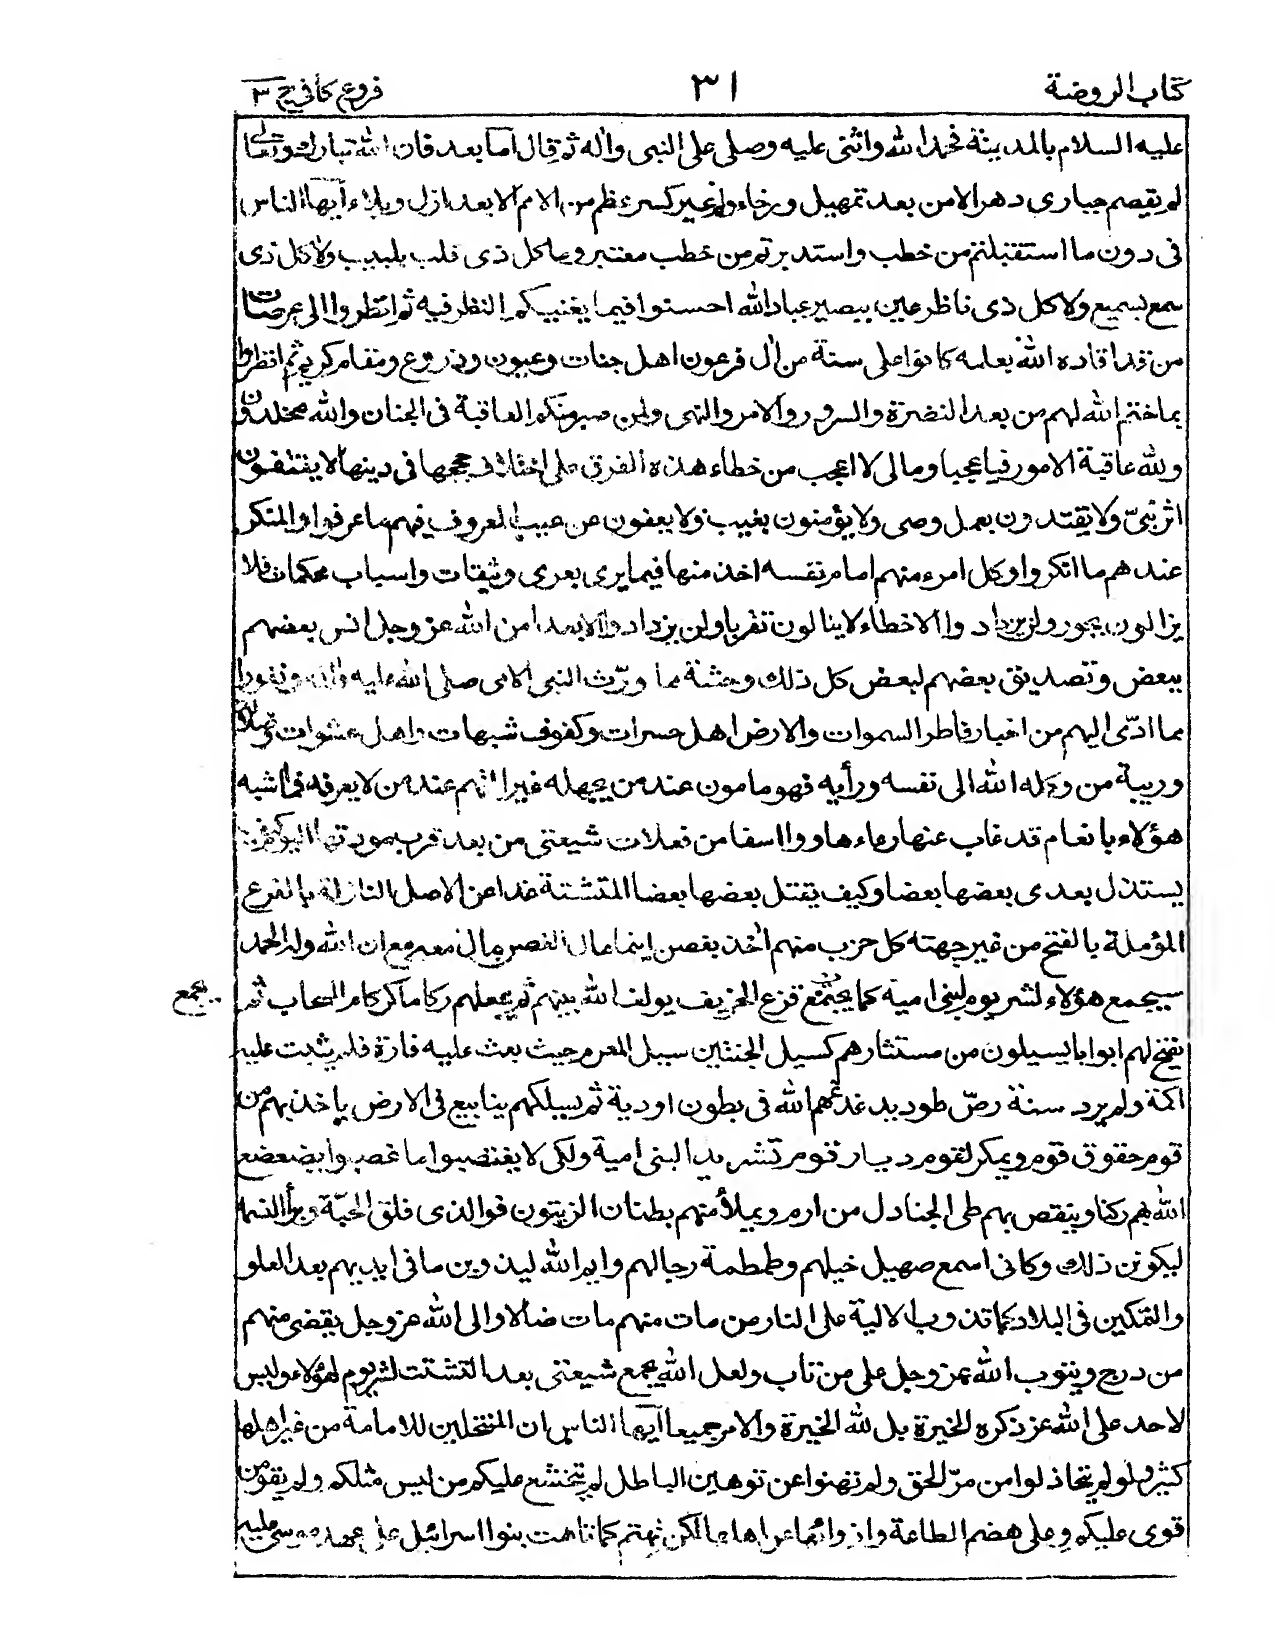 كتاب الروضة ٣١ فروع كافي ج ٣
عليه السلام بالمدينة فحمد الله واثنى عليه وصلى على النبى واله ثم قال اما بعد فان الله تبارك وتعالى
لم يقصم جبارى دهر الا من بعد تمهيل ورخاء ولم يجبر كسر عظم من الامم الا بعد ازل وبلاء ايها الناس
فى دون ما استقبلتم من خطب واستدبرتم من خطب معتبر وما كل ذى قلب بلبيب ولا كل ذى
سمع بسميع ولا كل ذى ناظر عين ببصير عباد الله احسنوا فيما يعنيكم النظر فيه ثم انظروا الى عرصات
من قد اقاده الله بعلمه كانوا على سنة من ال فرعون اهل جنات وعيون وزروع ومقام كريم ثم انظروا
بما ختم الله لهم من بعد النضرة والسرور والامر والنهى ولمن صبر منكم العاقبة فى الجنان والله مخلدون
ولله عاقبة الامور فيا عجبا ومالى لا اعجب من خطاء هذه الفرق على اختلاف حججها فى دينها لا يقتفون
اثر نبىّ ولا يقتدون بعمل وصى ولا يؤمنون بغيب ولا يعفون عن عيب المعروف فيهم ما عرفوا والمنكر
عندهم ما انكروا وكل امرء منهم امام نفسه اخذ منها فيما يرى بعرى وثيقات واسباب محكمات فلا
يزالون بجور ولن يزدادوا الا خطاء لا ينالون تقربا ولن يزدادوا الا بعدا من الله عز وجل انس بعضهم
ببعض وتصديق بعضهم لبعض كل ذلك وحشة مما ورّث النبى الامى صلى الله عليه واله ونفورا
مما ادّى اليهم من اخبار فاطر السموات والارض اهل حسرات وكفوف شبهات واهل عشوات وضلالة
وريبة من وكله الله الى نفسه ورأيه فهو مامون عند من يجهله غير المتهم عند من لا يعرفه فما اشبه
هؤلاء بانعام قد غاب عنها رعاءها ووا اسفا من فعلات شيعتى من بعد قرب مودتها اليوم كيف
يستذل بعدى بعضها بعضا وكيف يقتل بعضها بعضا المتشتة غدا عن الاصل النازلة بالفرع
المؤملة بالفتح من غير جهته كل حزب منهم اخذ بغصن اينما مال الغصن مال معه مع ان الله وله الحمد
سيجمع هؤلاء لشر يوم لبنى امية كما يجتمع قزع الخريف يولف الله بينهم ثم يجعلهم ركاما كركام السحاب ثم
يجمع
يفتح لهم ابوابا يسيلون من مستثارهم كسيل الجنتين سيل العرم حيث بعث عليه فارة فلم يثبت عليه
اكمة ولم يرد سننه رصّ طود يذعذعهم الله فى بطون اودية ثم يسلكهم ينابيع فى الارض ياخذ بهم من
قوم حقوق قوم ويمكر لقوم ديار قوم تشريدا لبنى امية ولكى لا يغتصبوا ما غصبوا يضعضع
الله بهم ركنا وينقض بهم طى الجنادل من ارم ويملأ منهم بطنان الزيتون فوالذى فلق الحبّة وبرأ النسمة
ليكونن ذلك وكانى اسمع صهيل خيلهم وطمطمة رجالهم وايم الله ليذوبن ما فى ايديهم بعد العلو
والتمكين فى البلاد كما تذوب الالية على النار من مات منهم مات ضالا والى الله عز وجل يقضى منهم
من درج ويتوب الله عز وجل على من تاب ولعل الله يجمع شيعتى بعد التشتت لشر يوم لهؤلاء وليس
لاحد على الله عز ذكره الخيرة بل لله الخيرة والامر جميعا ايها الناس ان المنتحلين للامامة من غير اهلها
كثير ولو لم تخاذلوا من مرّ الحق ولم تهنوا عن توهين الباطل لم يتخشع عليكم من ليس مثلكم ولم يقو من
قوى عليكم وعلى هضم الطاعة وازوائها عن اهلها لكن تهتم كما تاهت بنوا اسرائيل على عهد موسى عليه